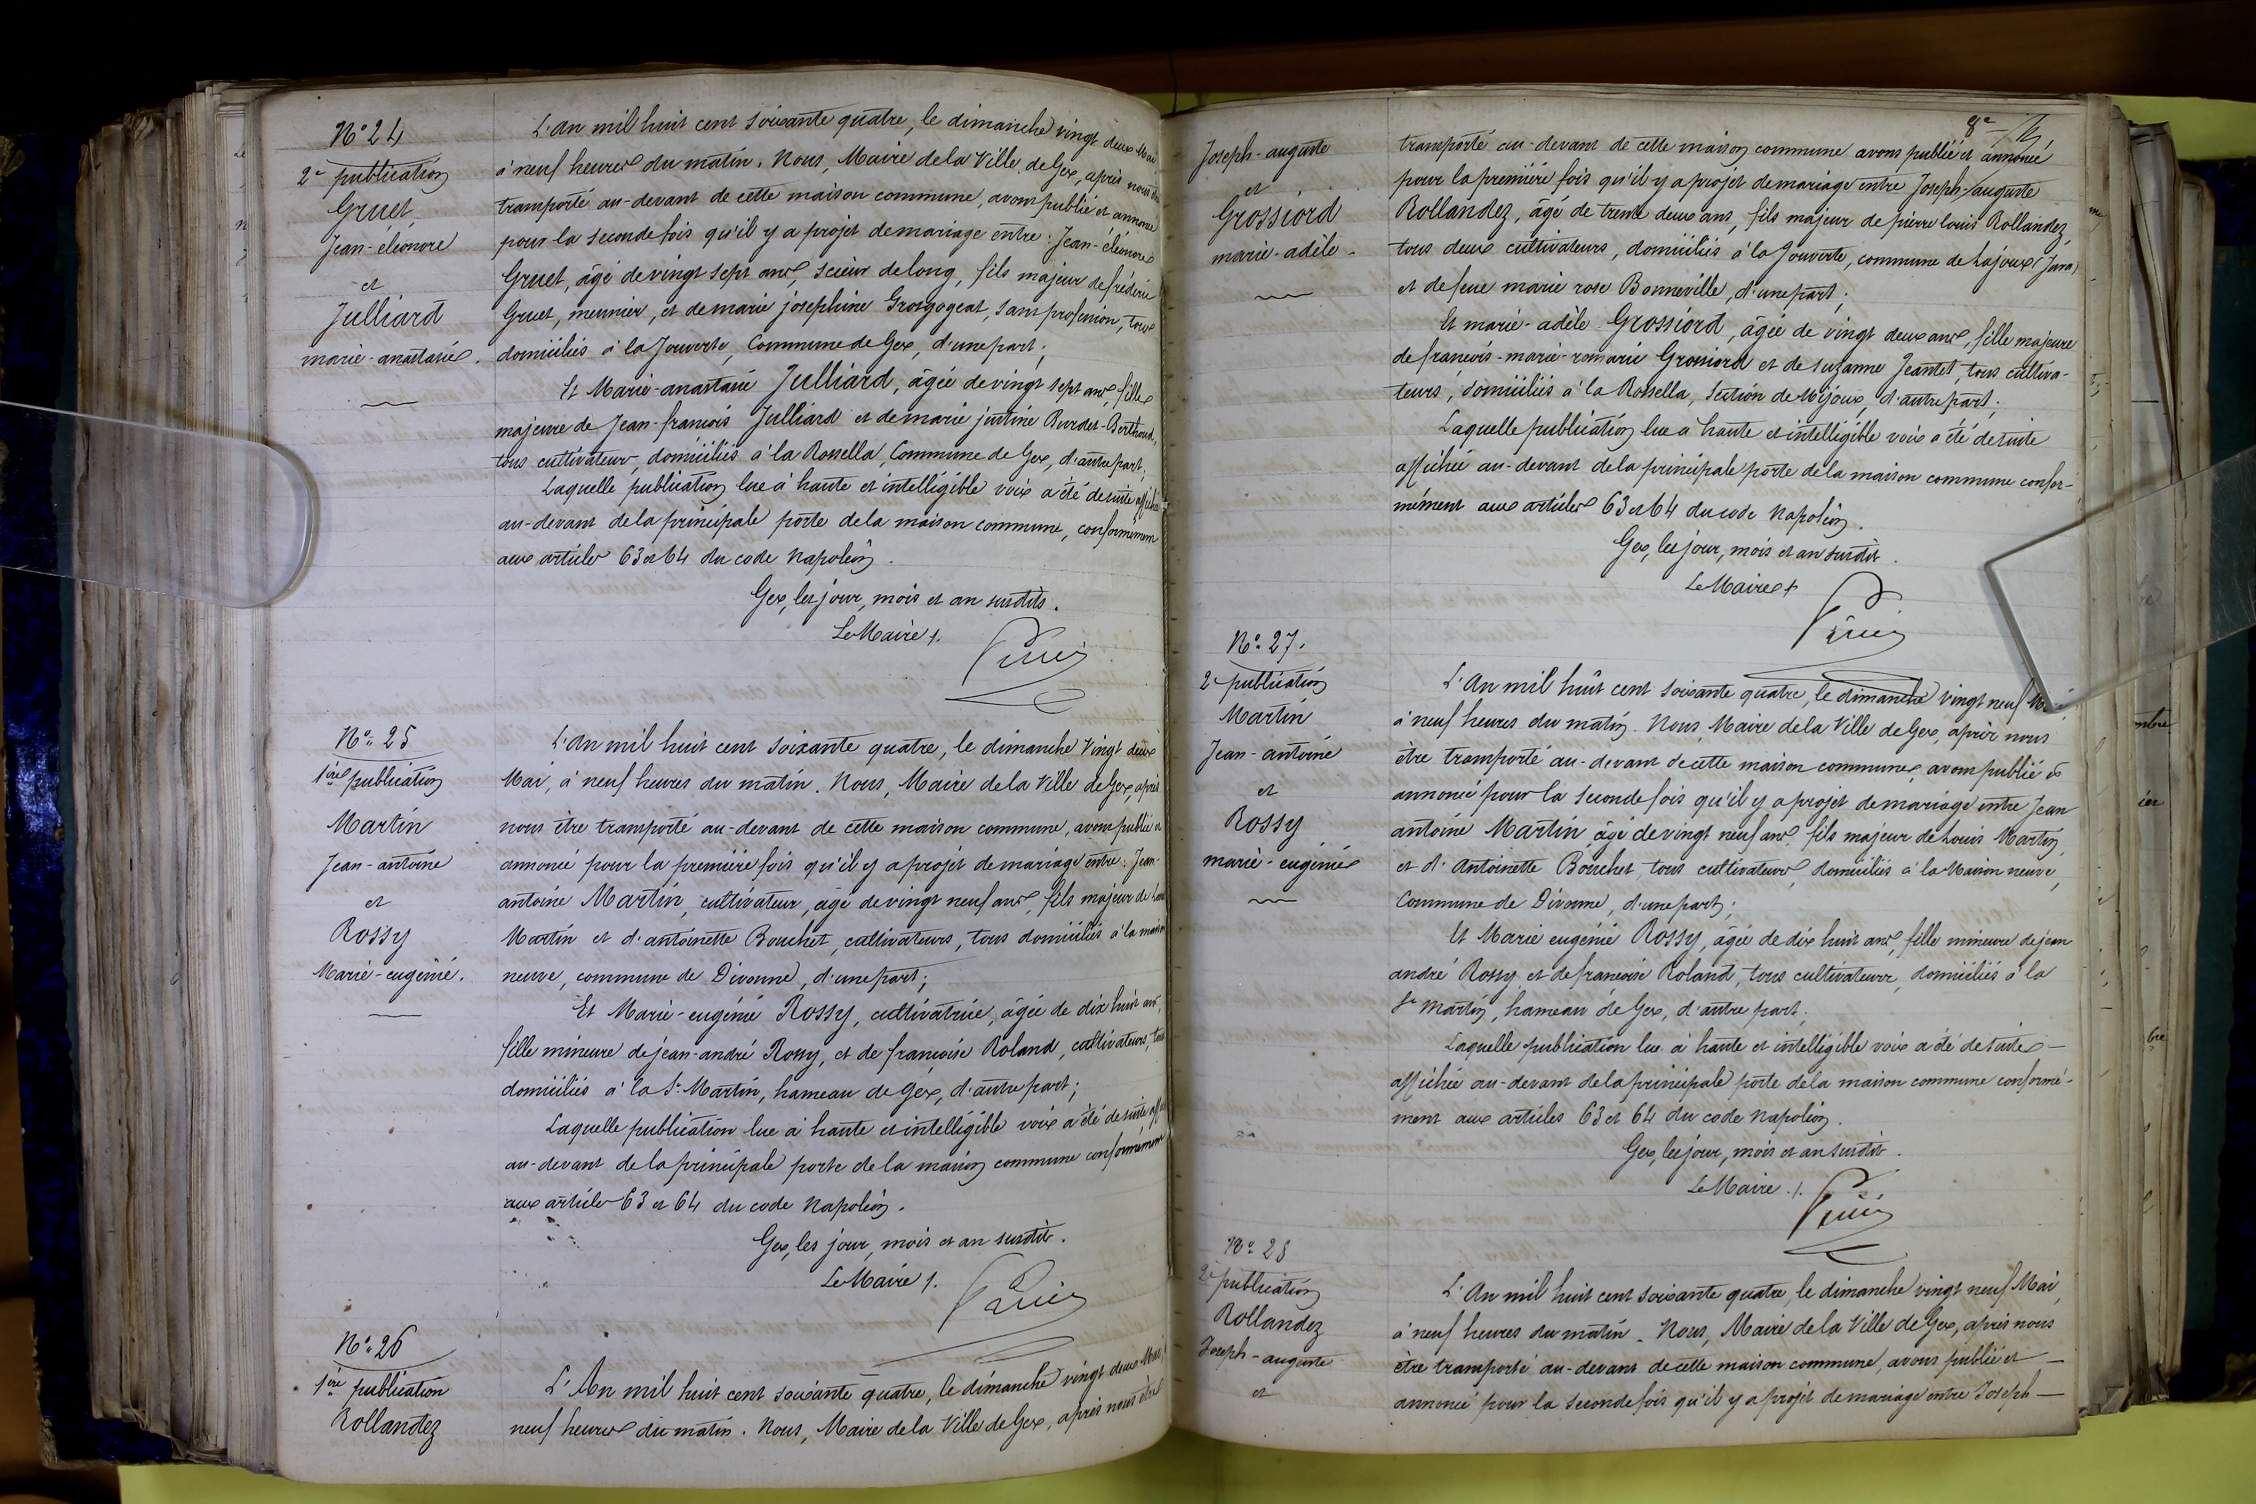 N° 24
2e publication
Gruet
Jean-éléonore
et
Julliard
marie-anastasie.
L'An mil huit cent soixante quatre, le dimanche vingt deux Mai
à neuf heures du matin. Nous, Maire de la Ville de Gex, après nous être
transporté au-devant de cette maison commune, avons publié et annoncé
pour la seconde fois qu'il y a projet de mariage entre : Jean-éléonore
Gruet, âgé de vingt sept ans, scieur de long, fils majeur de fréderic
Gruet, meunier, et de marie josephine Grosgogeat, sans profession, tous
domiciliés à la Jouverte, Commune de Gex, d'une part ;
Et Marie-anastasie Julliard, âgée de vingt sept ans, fille
majeure de Jean-francois Julliard et de marie justine Burdet-Berthoud,
tous cultivateurs, domiciliés à la Rossella, Commune de Gex, d'autre part ;
Laquelle publication lue à haute et intelligible voix a été de suite affichée
au-devant de la principale porte de la maison commune, conformémem
aux articles 63 et 64 du code Napoléon.
Gex, les jour, mois et an susdits.
Le Maire /.
N° 25
1ère publication
Martin
Jean-antoine
et
Rossy
Marie-eugénie.
L'An mil huit cent soixante quatre, le dimanche vingt deux
Mai, à neuf heures du matin. Nous, Maire de la Ville de Gex, après
nous être transporté au-devant de cette maison commune, avons publié et
annoncé pour la première fois qu'il y a projet de mariage entre : Jean-
antoine Martin, cultivateur, âgé de vingt neuf ans, fils majeur de Louis
Martin et d'antoinette Bouchet, cultivateurs, tous domiciliés à la maison
neuve, commune de Divonne, d'une part ;
Et Marie-eugénie Rossy, cultivatrice, âgée de dix huit ans,
fille mineure de jean-andré Rossy, et de francoise Roland, cultivateurs, tous
domiciliés à la St Martin, hameau de Gex, d'autre part ;
Laquelle publication lue à haute et intelligible voix a été de suite aff
au-devant de la principale porte de la maison commune conformémem
aux articles 63 et 64 du code Napoléon.
Gex, les jour, mois et an susdits.
Le Maire /.
N° 26
1ère publication
Rollandez
L'An mil huit cent soixante quatre, le dimanche vingt deux Mai, à
neuf heures du matin. Nous, Maire de la Ville de Gex, après nous être
8e
Joseph-auguste
et
Grossiord
marie-adèle.
transporté au-devant de cette maison commune avons publié et annoncé
pour la première fois qu'il y a projet de mariage entre Joseph-auguste
Rollandez, âgé de trente deux ans, fils majeur de pierre louis Rollandez,
tous deux cultivateurs, domiciliés à la Jouverte, commune de Lajoux (Jura)
et de feue marie rose Bonneville, d'une part ;
Et marie-adèle Grossiord, âgée de vingt deux ans, fille majeure
de francois-marie-romarie Grossiord et de suzanne Jeantet, tous cultiva-
teurs, domiciliés à la Rossella, section de Mijoux, d'autre part ;
Laquelle publication lue à haute et intelligible voix a été de suite
affichée au-devant de la principale porte de la maison commune confor-
mément aux articles 63 et 64 du code Napoléon.
Gex, les jour, mois et an susdits.
Le Maire /.
N° 27.
2e publication
Martin
Jean-antoine
et
Rossy
marie-eugénie
L'An mil huit cent soixante quatre, le dimanche vingt neuf Mai
à neuf heures du matin. Nous, Maire de la Ville de Gex, après nous
être transporté au-devant de cette maison commune, avons publié et
annoncé pour la seconde fois qu'il y a projet de mariage entre Jean
antoine Martin, âgé de vingt neuf ans, fils majeur de Louis Martin,
et d'Antoinette Bouchet, tous cultivateurs, domiciliés à la Maison neuve,
Commune de Divonne, d'une part ;
Et Marie eugénie Rossy, âgée de dix huit ans, fille mineure de jean
andré Rossy et de francoise Roland, tous cultivateurs, domiciliés à la
St Martin, hameau de Gex, d'autre part.
Laquelle publication lue à haute et intelligible voix a été de suite
affichée au-devant de la principale porte de la maison commune conformé-
ment aux articles 63 et 64 du code Napoléon.
Gex, les jour, mois et an susdits.
Le Maire /.
N° 28
2e publication
Rollandez
Joseph-auguste
et
L'An mil huit cent soixante quatre, le dimanche vingt neuf Mai,
à neuf heures du matin. Nous, Maire de la Ville de Gex, après nous
être transporté au-devant de cette maison commune, avons publié et
annoncé pour la seconde fois qu'il y a projet de mariage entre Joseph